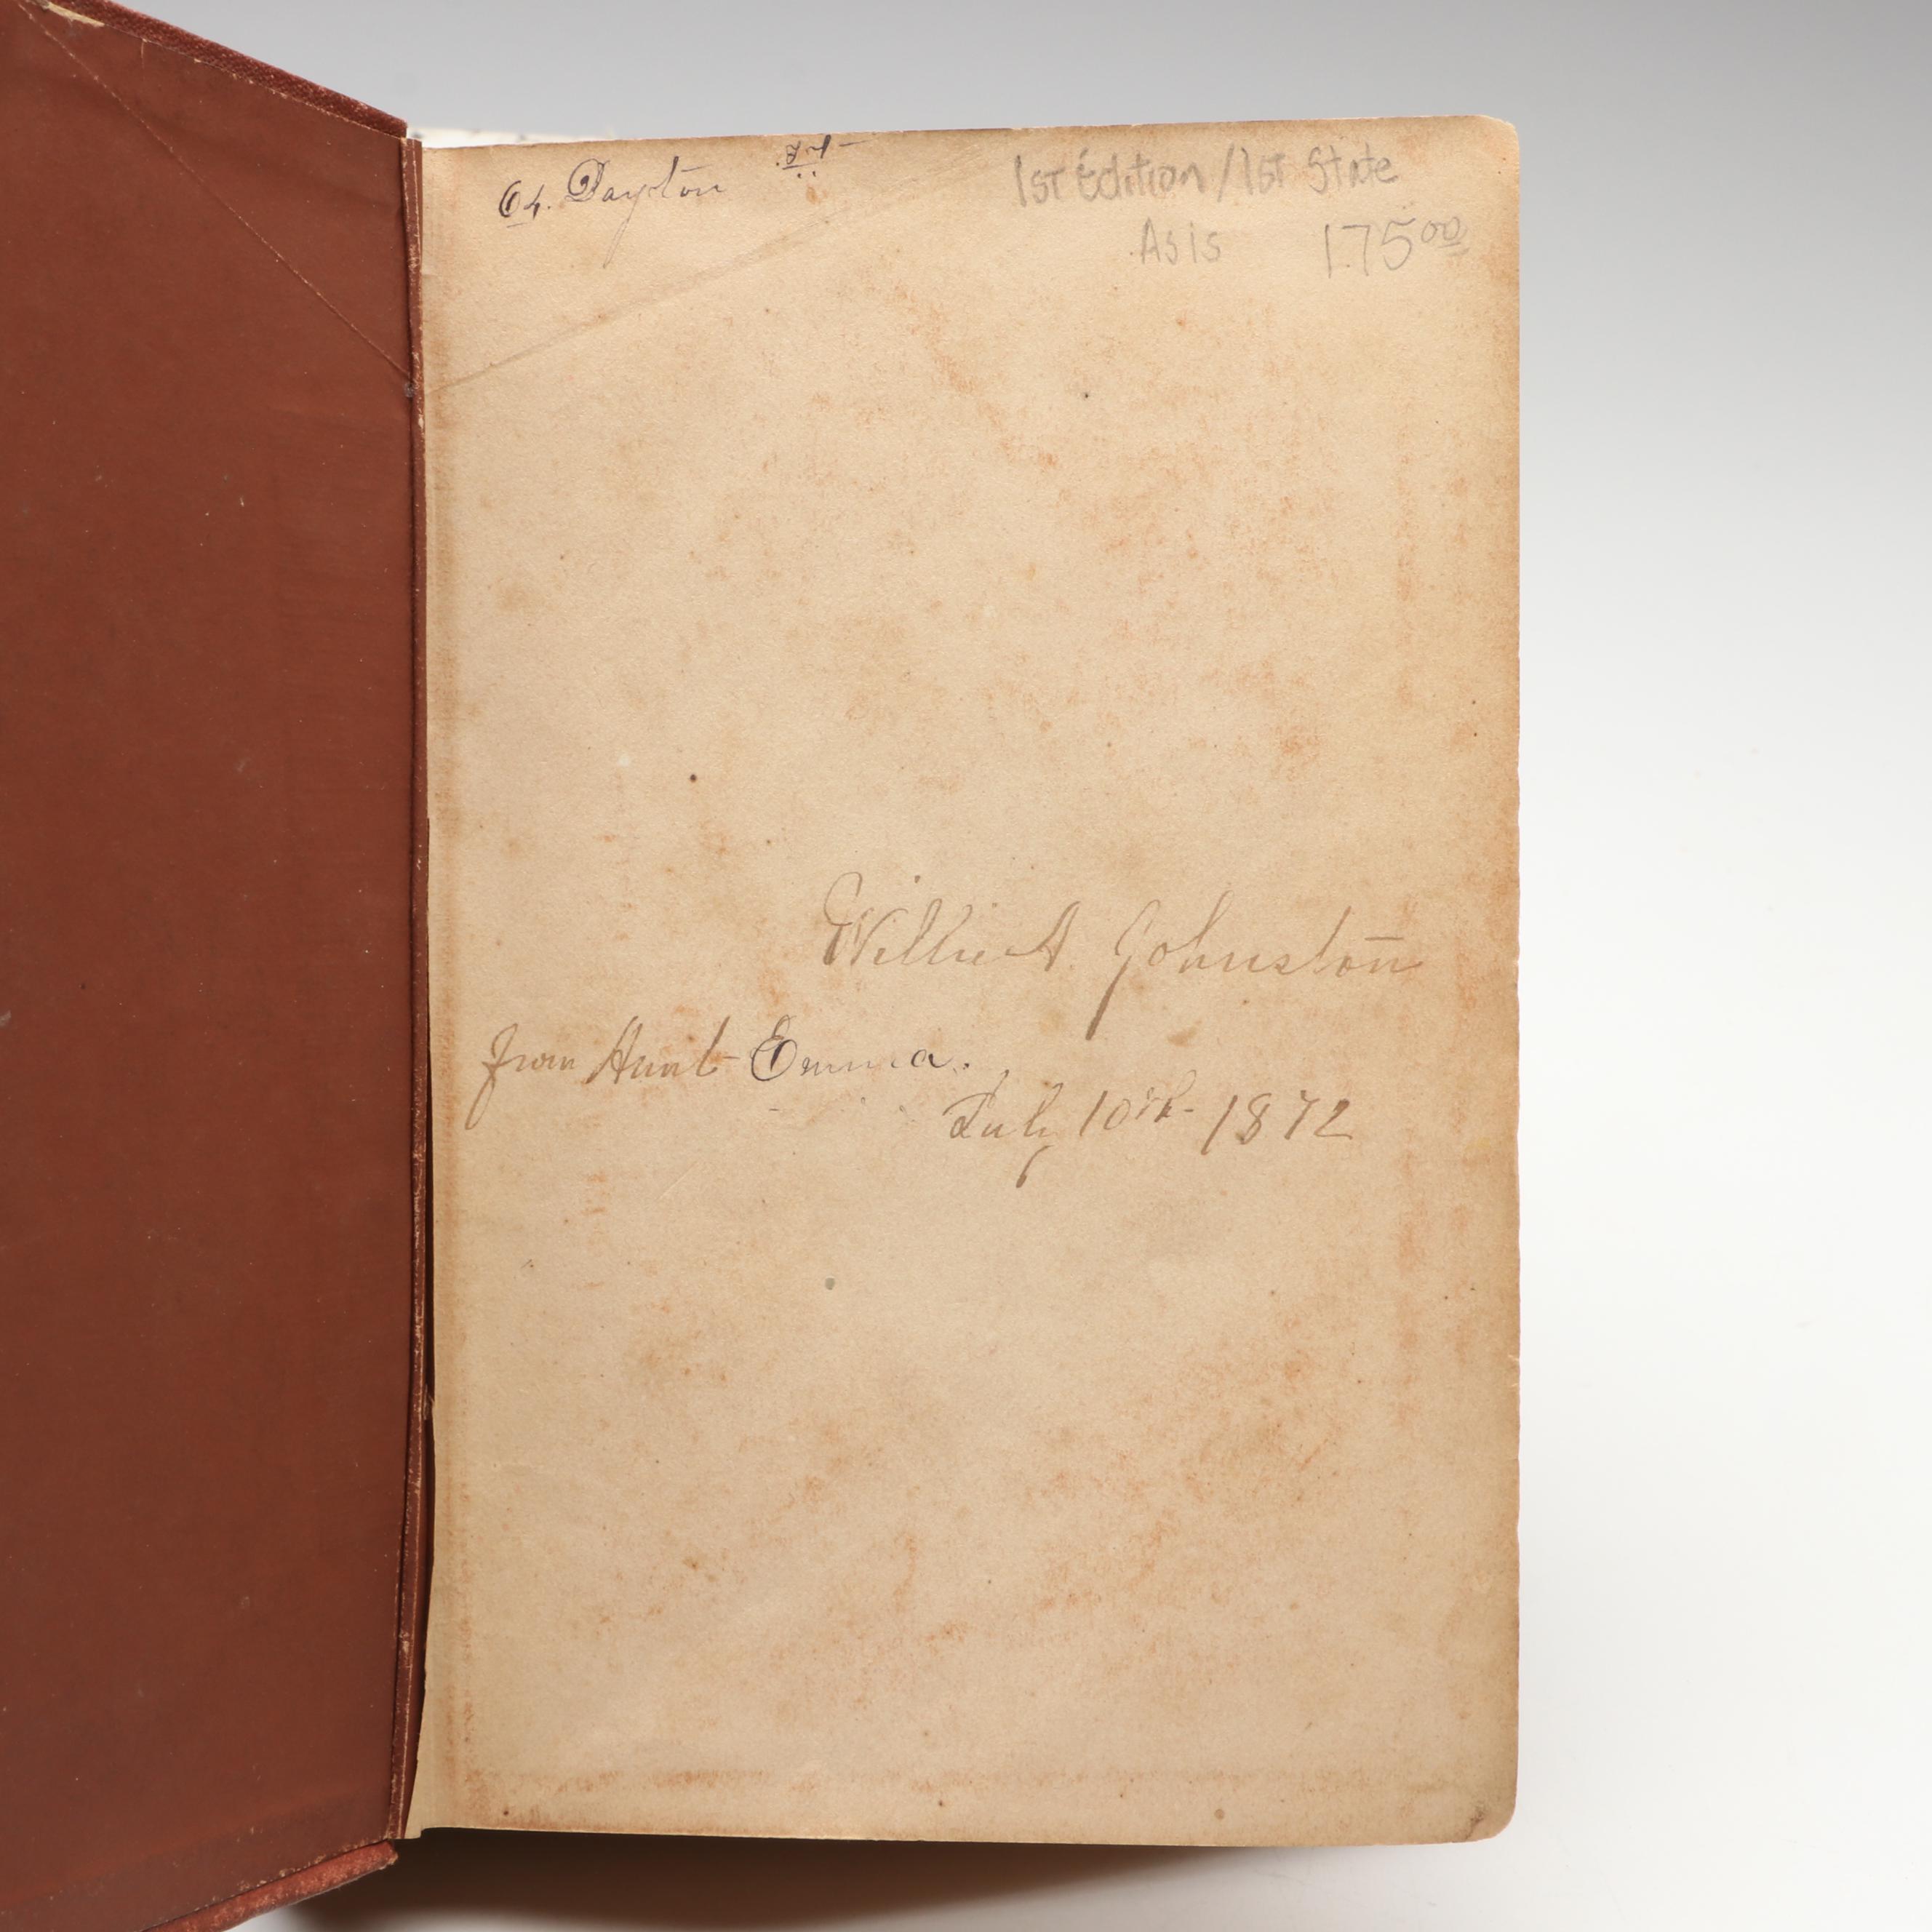 64. Dayton St.
1st Edition / 1st State
As is 175 00
Willie A. Johnston
from Aunt Emma.
July 10th - 1872